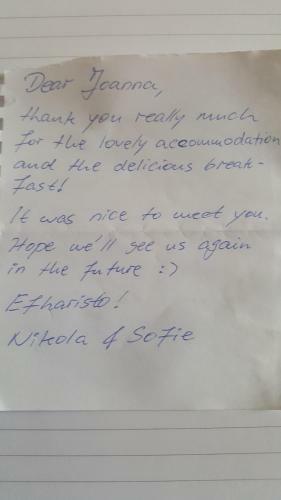 Dear Joanna,
thank you really much
for the lovely accommodation
and the delicious break-
fast!
It was nice to meet you.
Hope we'll see us again
in the future :)
Efharisto!
Nikola & Sofie